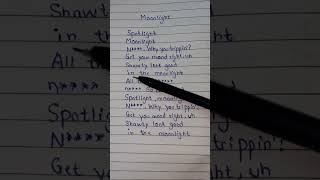 Moonlight
Spotlight
Moonlight
N****. Why you trippin?
Get you mood right, uh
Shawty look good
in the moonlight
All
n****
Spotlight, moonlight
N****. Why you trippin'
Get you mood right, uh
Shawty look good
in the moonlight